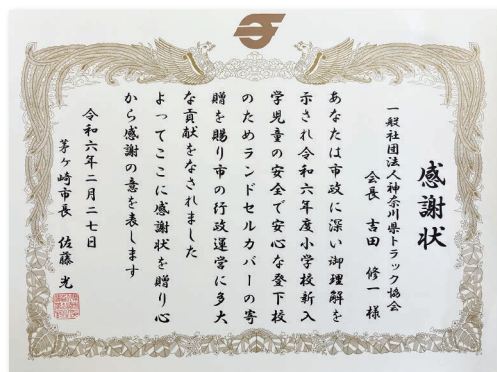 感謝状
一般社団法人神奈川県トラック協会
会長 吉田 修一 様
あなたは市政に深い御理解を
示され令和六年度小学校新入
学児童の安全で安心な登下校
のためランドセルカバーの寄
贈を賜り市の行政運営に多大
な貢献をなされました
よってここに感謝状を贈り心
から感謝の意を表します
令和六年二月二七日
茅ヶ崎市長 佐藤 光